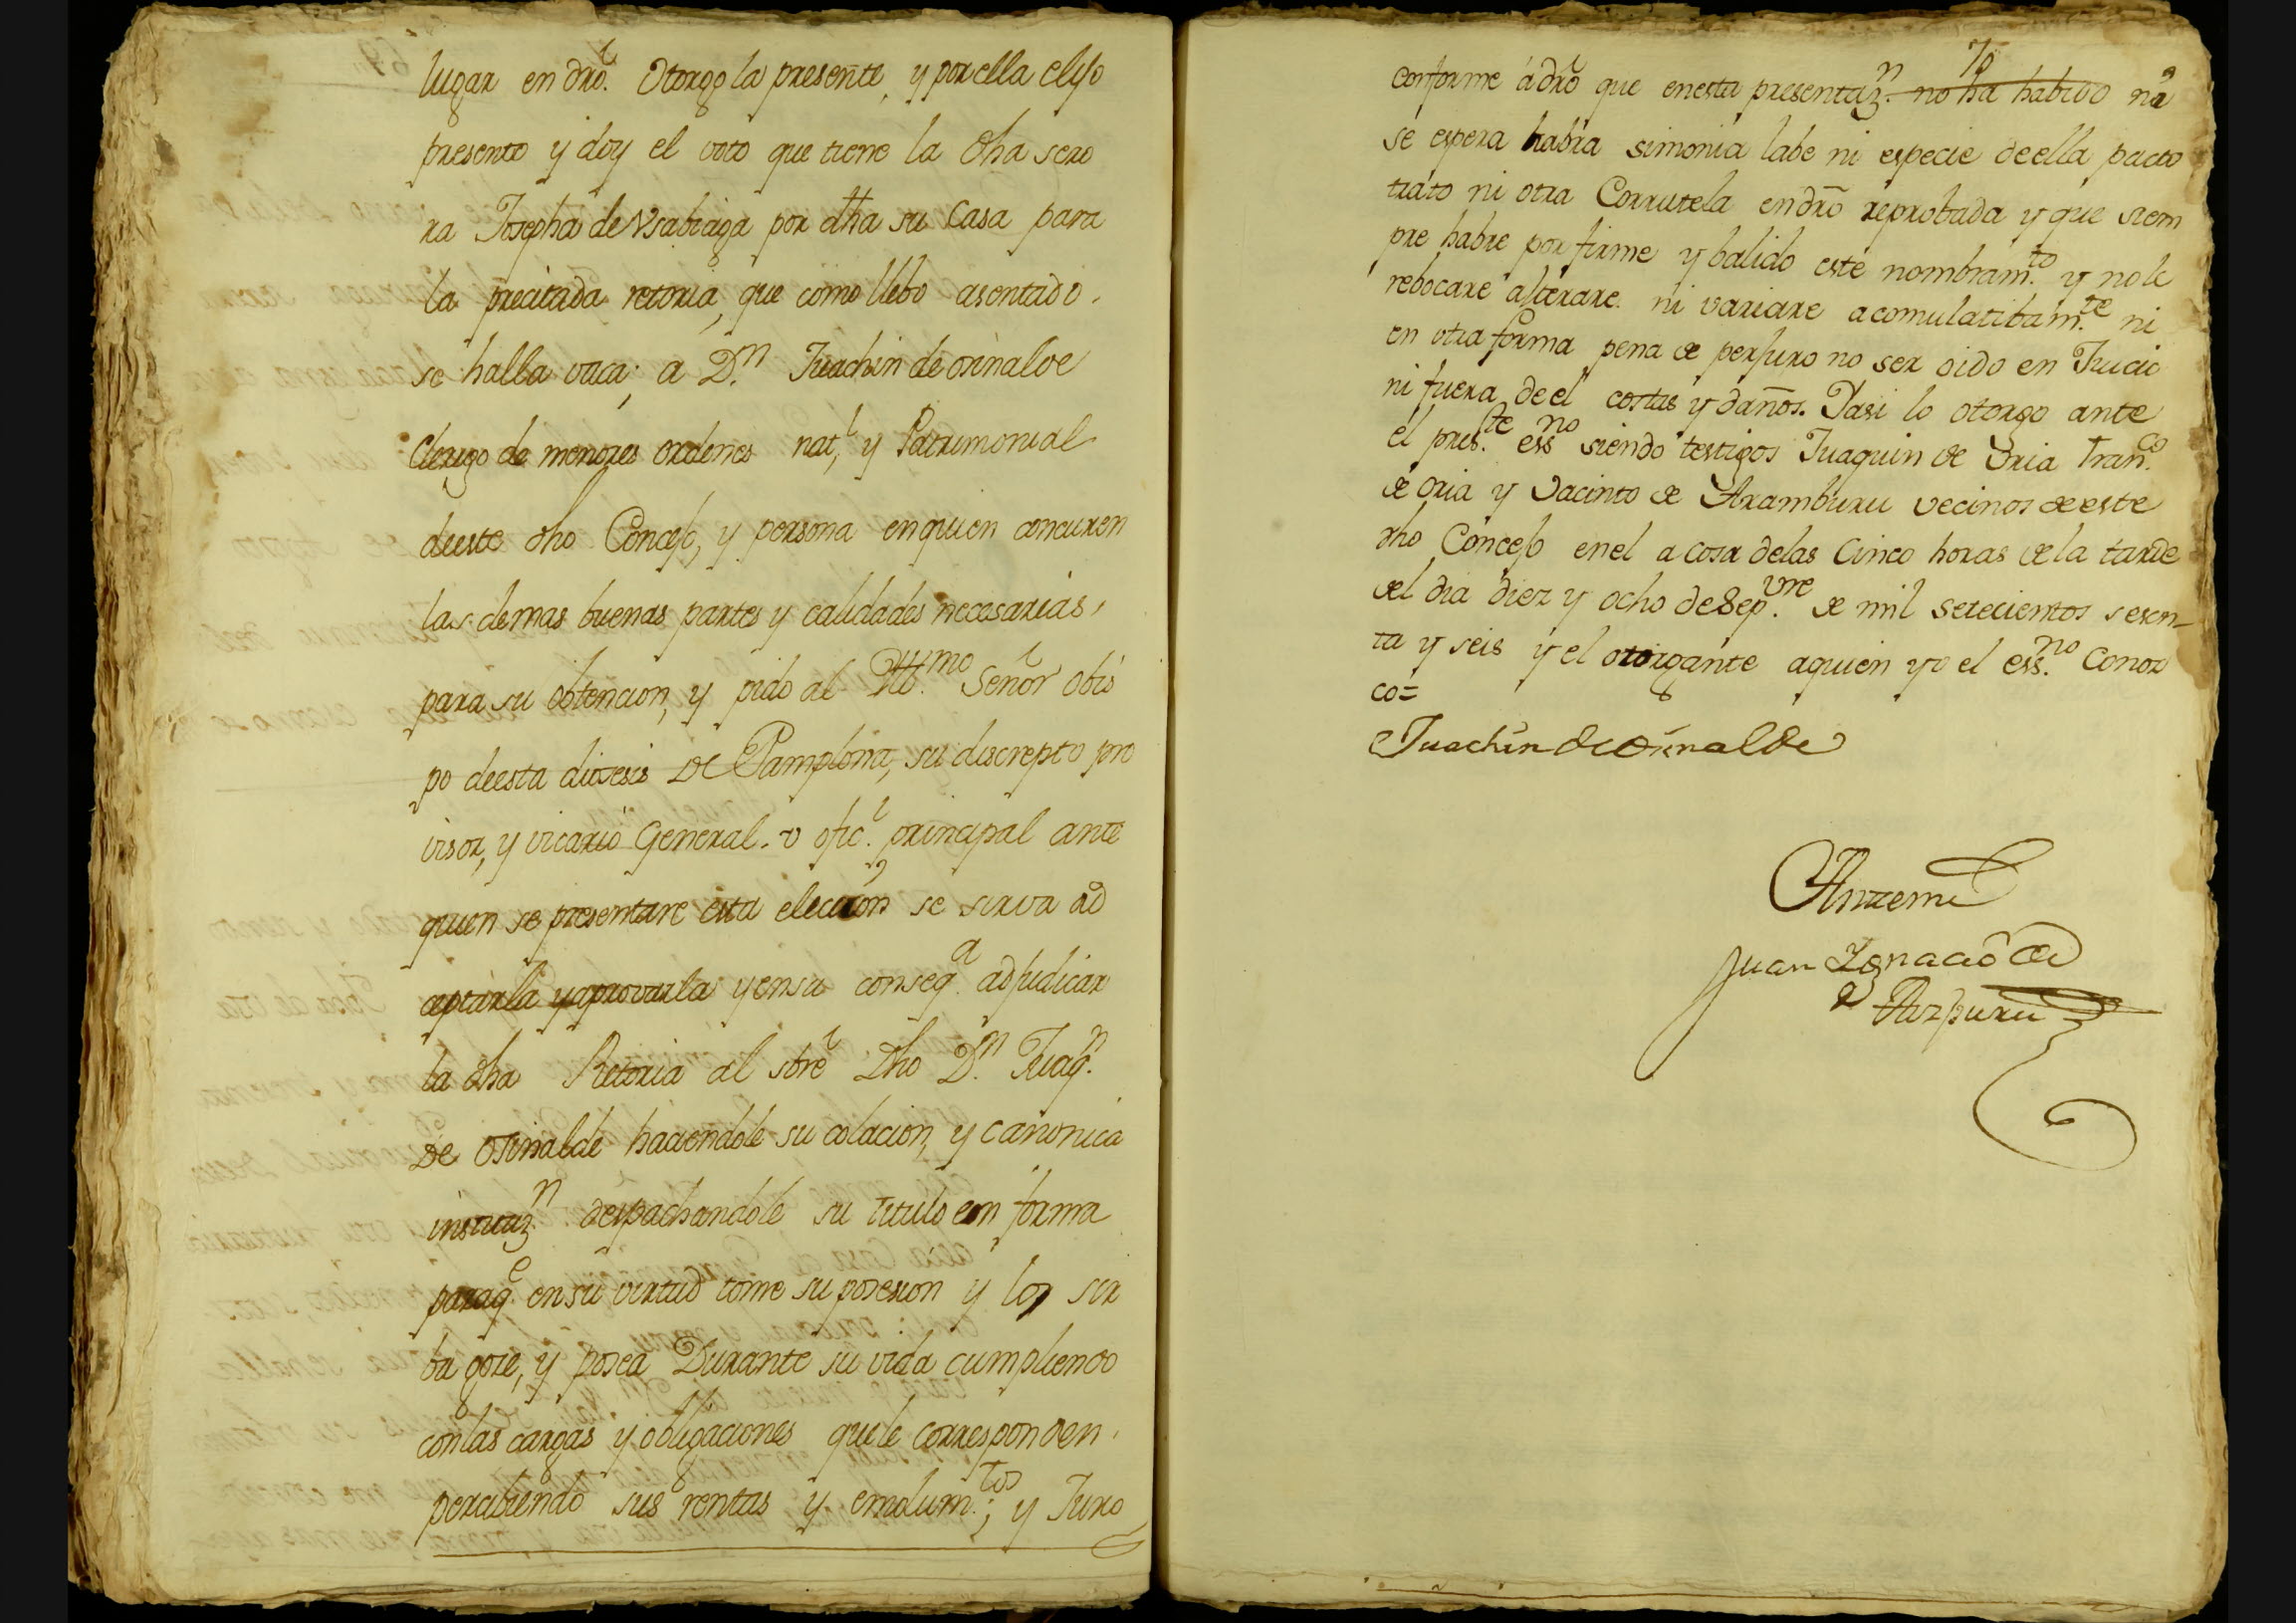 lugar en dro̅. Otorgo la presente, y por ella elijo
presento y doy el voto que tiene la dha sero
ra Josepha de Usabiaga por dha su Casa para
la precitada retoria, que como llebo asentado.
se halla vaca; a D.n Juachin de orinalde
Clerigo de menores ordenes nat.l y Patrimonial
deeste dho Concejo, y persona enquien concurren
las demas buenas partes y calidades necesarias,
para su obtencion, y pido al Ill.mo Señor Obis
po deesta diocesis De Pamplona, su discrepto pro
visor, y vicario General. v ofic.l principal ante
quien se presentare esta eleccion, se sirva ad
eptarla yaprovarla yensu conseq.a adjudicar
la dha Retoria al sbre Dho D.n Juaq.n
De orinalde haciendole su colacion, y canonica
instituz.n despachandole su titulo en forma
paraq.e ensu virtud tome su posesion y los sir
ba goze, y posea Durante su vida cumpliendo
conlas cargas y obligaciones quele corresponden.
perciviendo sus rentas y emolum.tos; y Juro
70
conforme a dro̅ que enesta presentaz.n no ha habido na
se espera habra simonia labe ni especie deella pacto
trato ni otra Corrutela endro̅ reprobada y que siem
pre habre por firme y balido este nombram.to y no le
rebocare alterare ni variare acomulatibam.te ni
en otra forma pena de perjuro no ser oido en Juicio
ni fuera deel costas y daños. Yasi lo otorgo ante
el pres.te ess.no siendo testigos Juaquin de Oria Fran.co
de Oria y Jacinto de Aramburu vecinos deeste
dho Concejo enel a cosa delas Cinco horas dela tarde
del dia diez y ocho de Sep.vre de mil setecientos sesen-
ta y seis y el otorgante aquien yo el ess.no Conoz
co=
Juachin de Orinalde
Antemi
Juan Ygnacio de
Aizpuru